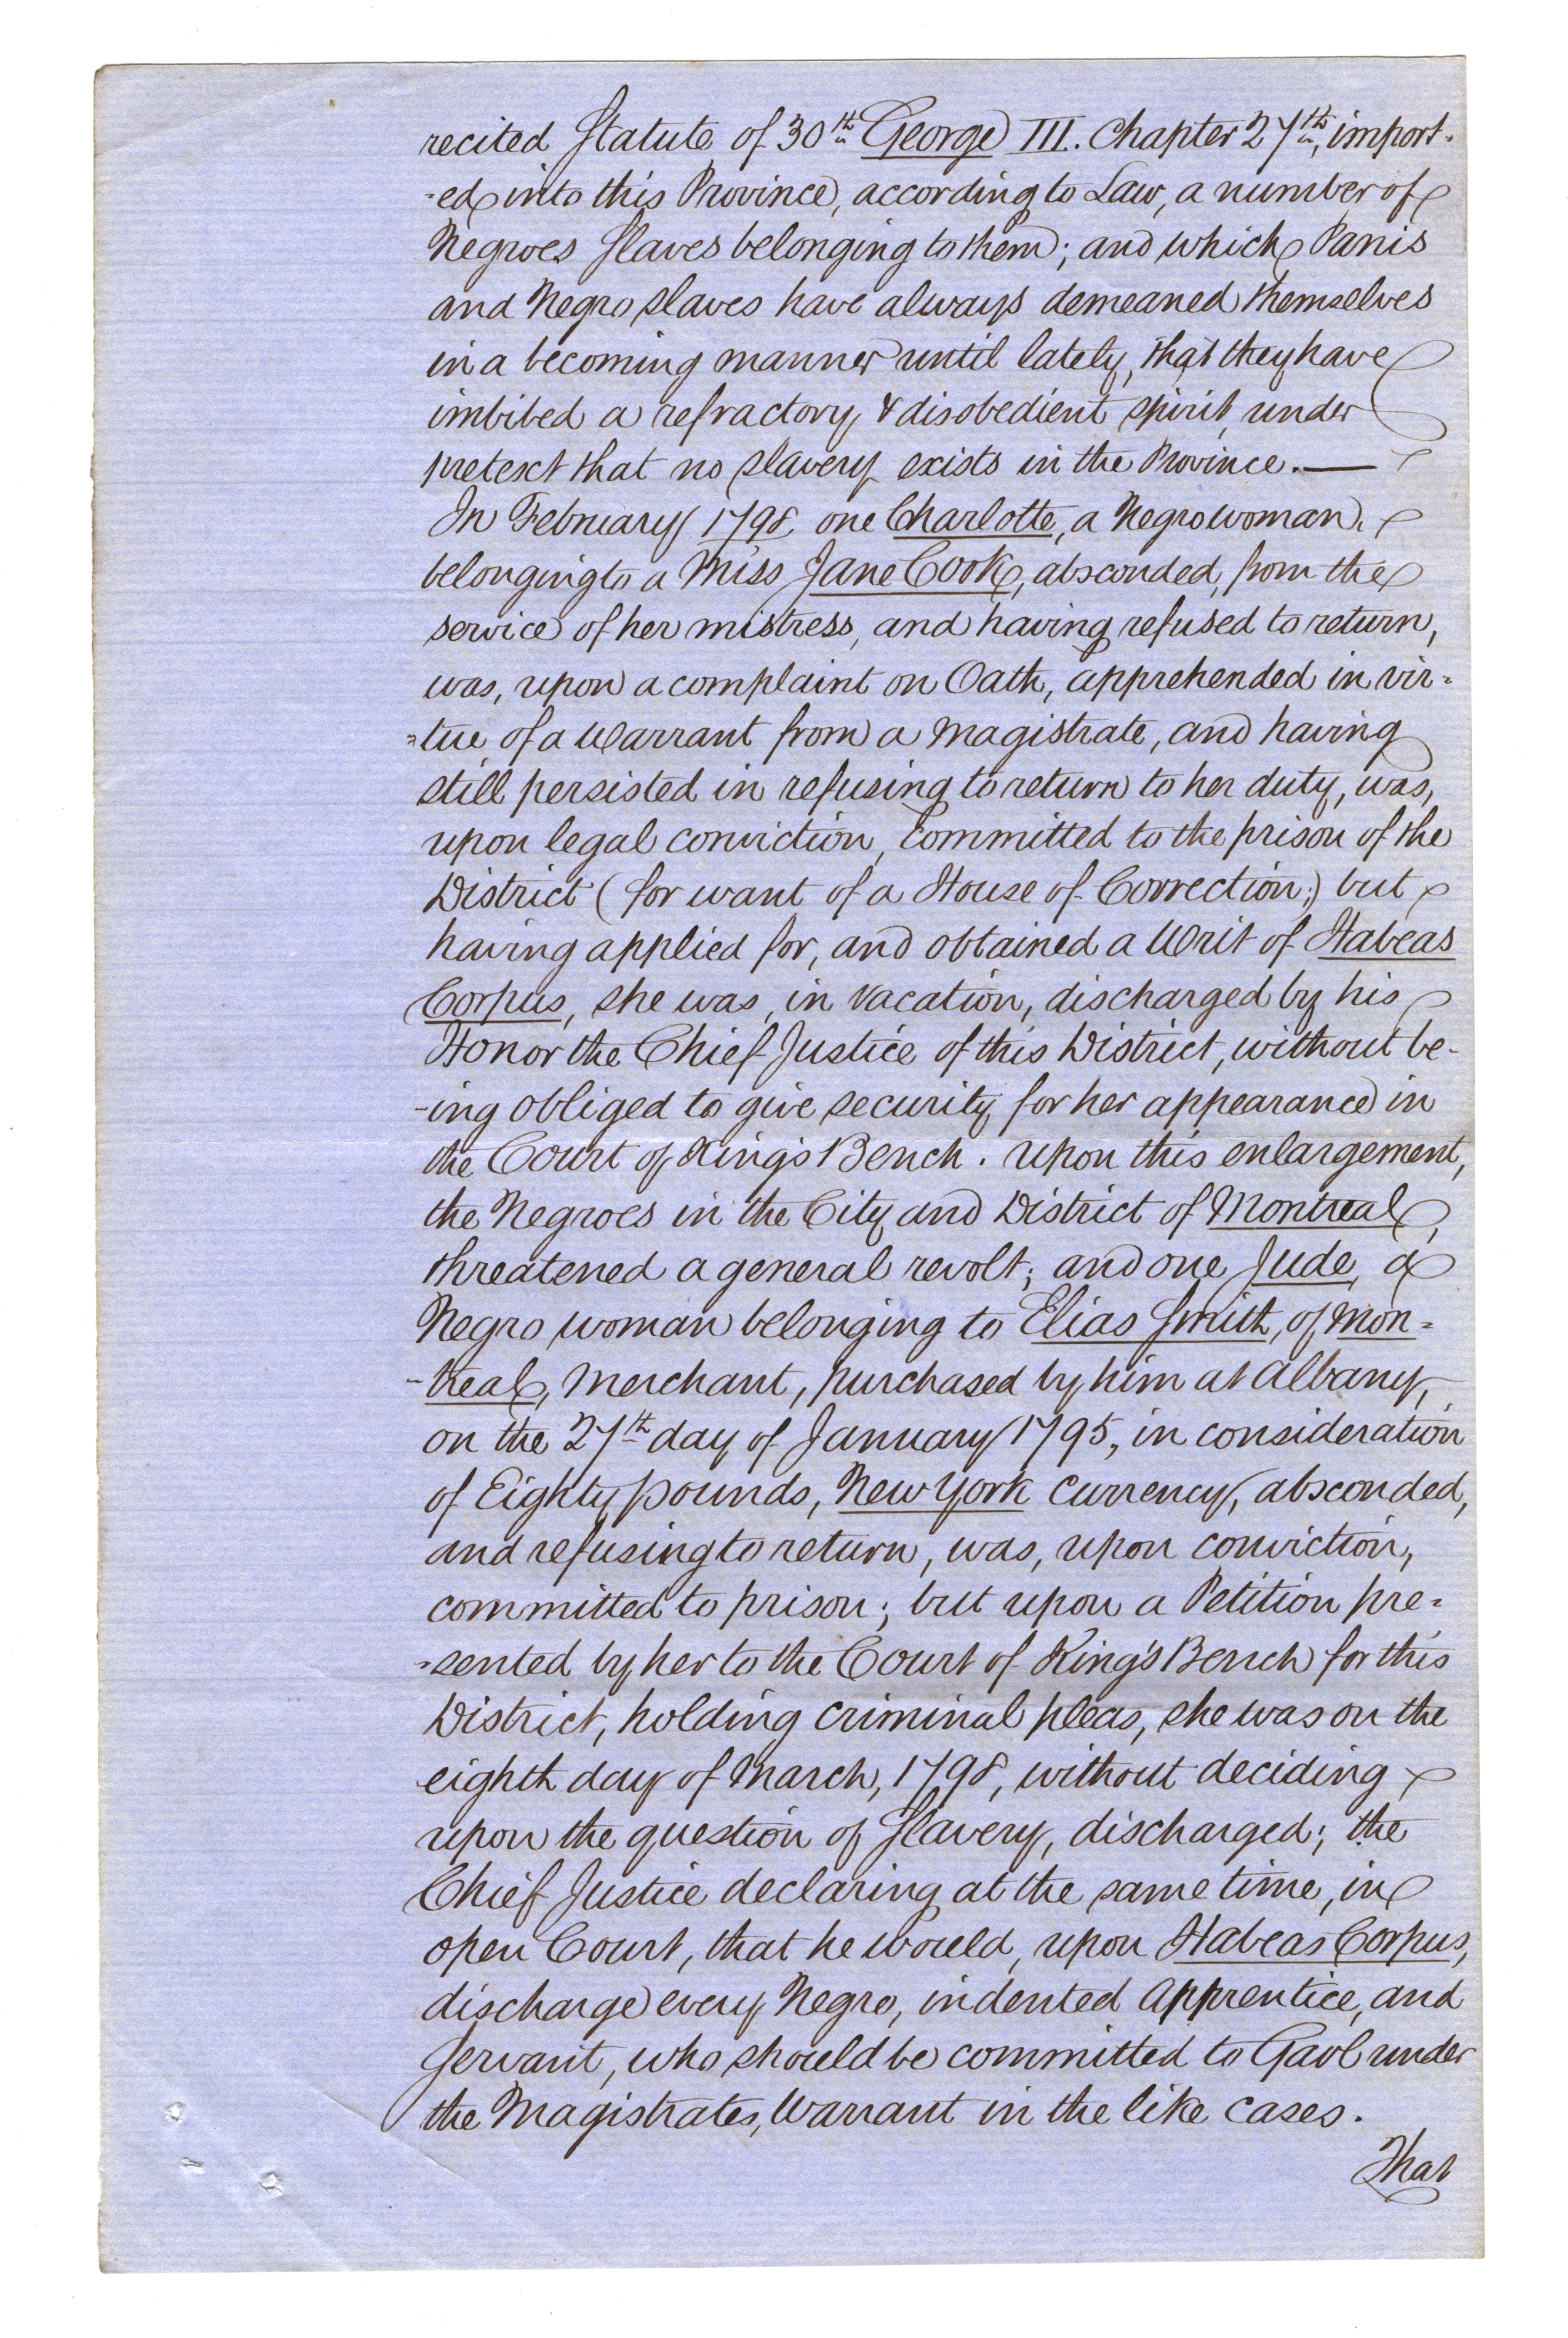 recited Statute of 30th George III. Chapter 27th, import-
-ed into this Province, according to Law, a number of
Negroes Slaves belonging to them; and which Panis
and Negro slaves have always demeaned themselves
in a becoming manner until lately, that they have
imbibed a refractory & disobedient spirit, under
pretext that no slavery exists in the Province.—
In February 1798, one Charlotte, a Negro woman,
belonging to a Miss Jane Cook, absconded, from the
service of her mistress, and having refused to return,
was, upon a complaint on Oath, apprehended in vir=
=tue of a Warrant from a Magistrate, and having
still persisted in refusing to return to her duty, was,
upon legal conviction, committed to the prison of the
District (for want of a House of Correction;) but
having applied for, and obtained a Writ of Habeas
Corpus, she was, in vacation, discharged by his
Honor the Chief Justice of this District, without be-
-ing obliged to give security for her appearance in
the Court of King's Bench. Upon this enlargement,
the Negroes in the City and District of Montreal,
threatened a general revolt; and one Jude, a
Negro woman belonging to Elias Smith, of Mon=
-treal, Merchant, purchased by him at Albany,
on the 27th day of January 1795, in consideration
of Eighty pounds, New York Currency, absconded,
and refusing to return, was, upon conviction,
committed to prison; but upon a Petition pre=
=sented by her to the Court of King's Bench for this
District, holding criminal pleas, she was on the
eighth day of March, 1798, without deciding
upon the question of Slavery, discharged; the
Chief Justice declaring at the same time, in
open Court, that he would, upon Habeas Corpus,
discharge every Negro, indented Apprentice, and
Servant, who should be committed to Gaol under
the Magistrates, Warrant in the like cases.
That